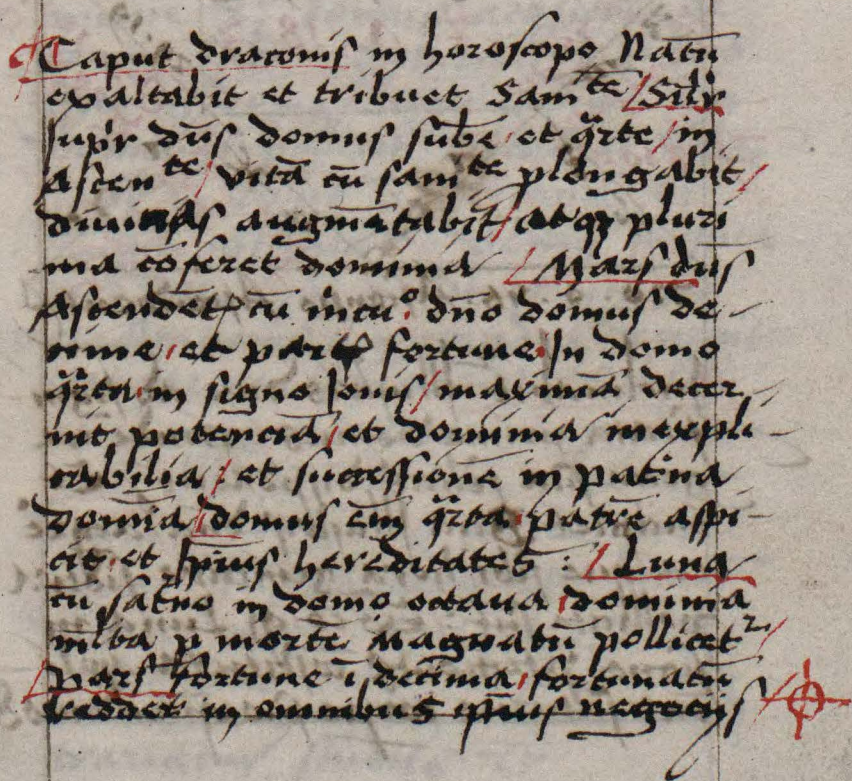 Caput draconis in horoscopo Natū
exaltabit et tribuet Samte / Silr
supr dūs domus subē et qrte / in
Ascente / vitā cū samte plongabit /
diuitias augmētabit / atqȝ pluri
ma cōferet dominia / Mars dūs
Ascendētꝭ cū mcuº dño domus de-
cime, et partꝭ fortune In domo
qrta in signo Iouis / maximā decer-
nit potenciā / et dominia inexpli-
cabilia / et successionē in patna
domīa / domus em qrta patrē aspi-
cit et ipīus hereditates : / Luna
cū satno in domo octaua / dominia
mlta p mortē Magnatū pollicetr /
Pars fortune ī decima, fortunatū
reddet in omnibus ipīus negocijs